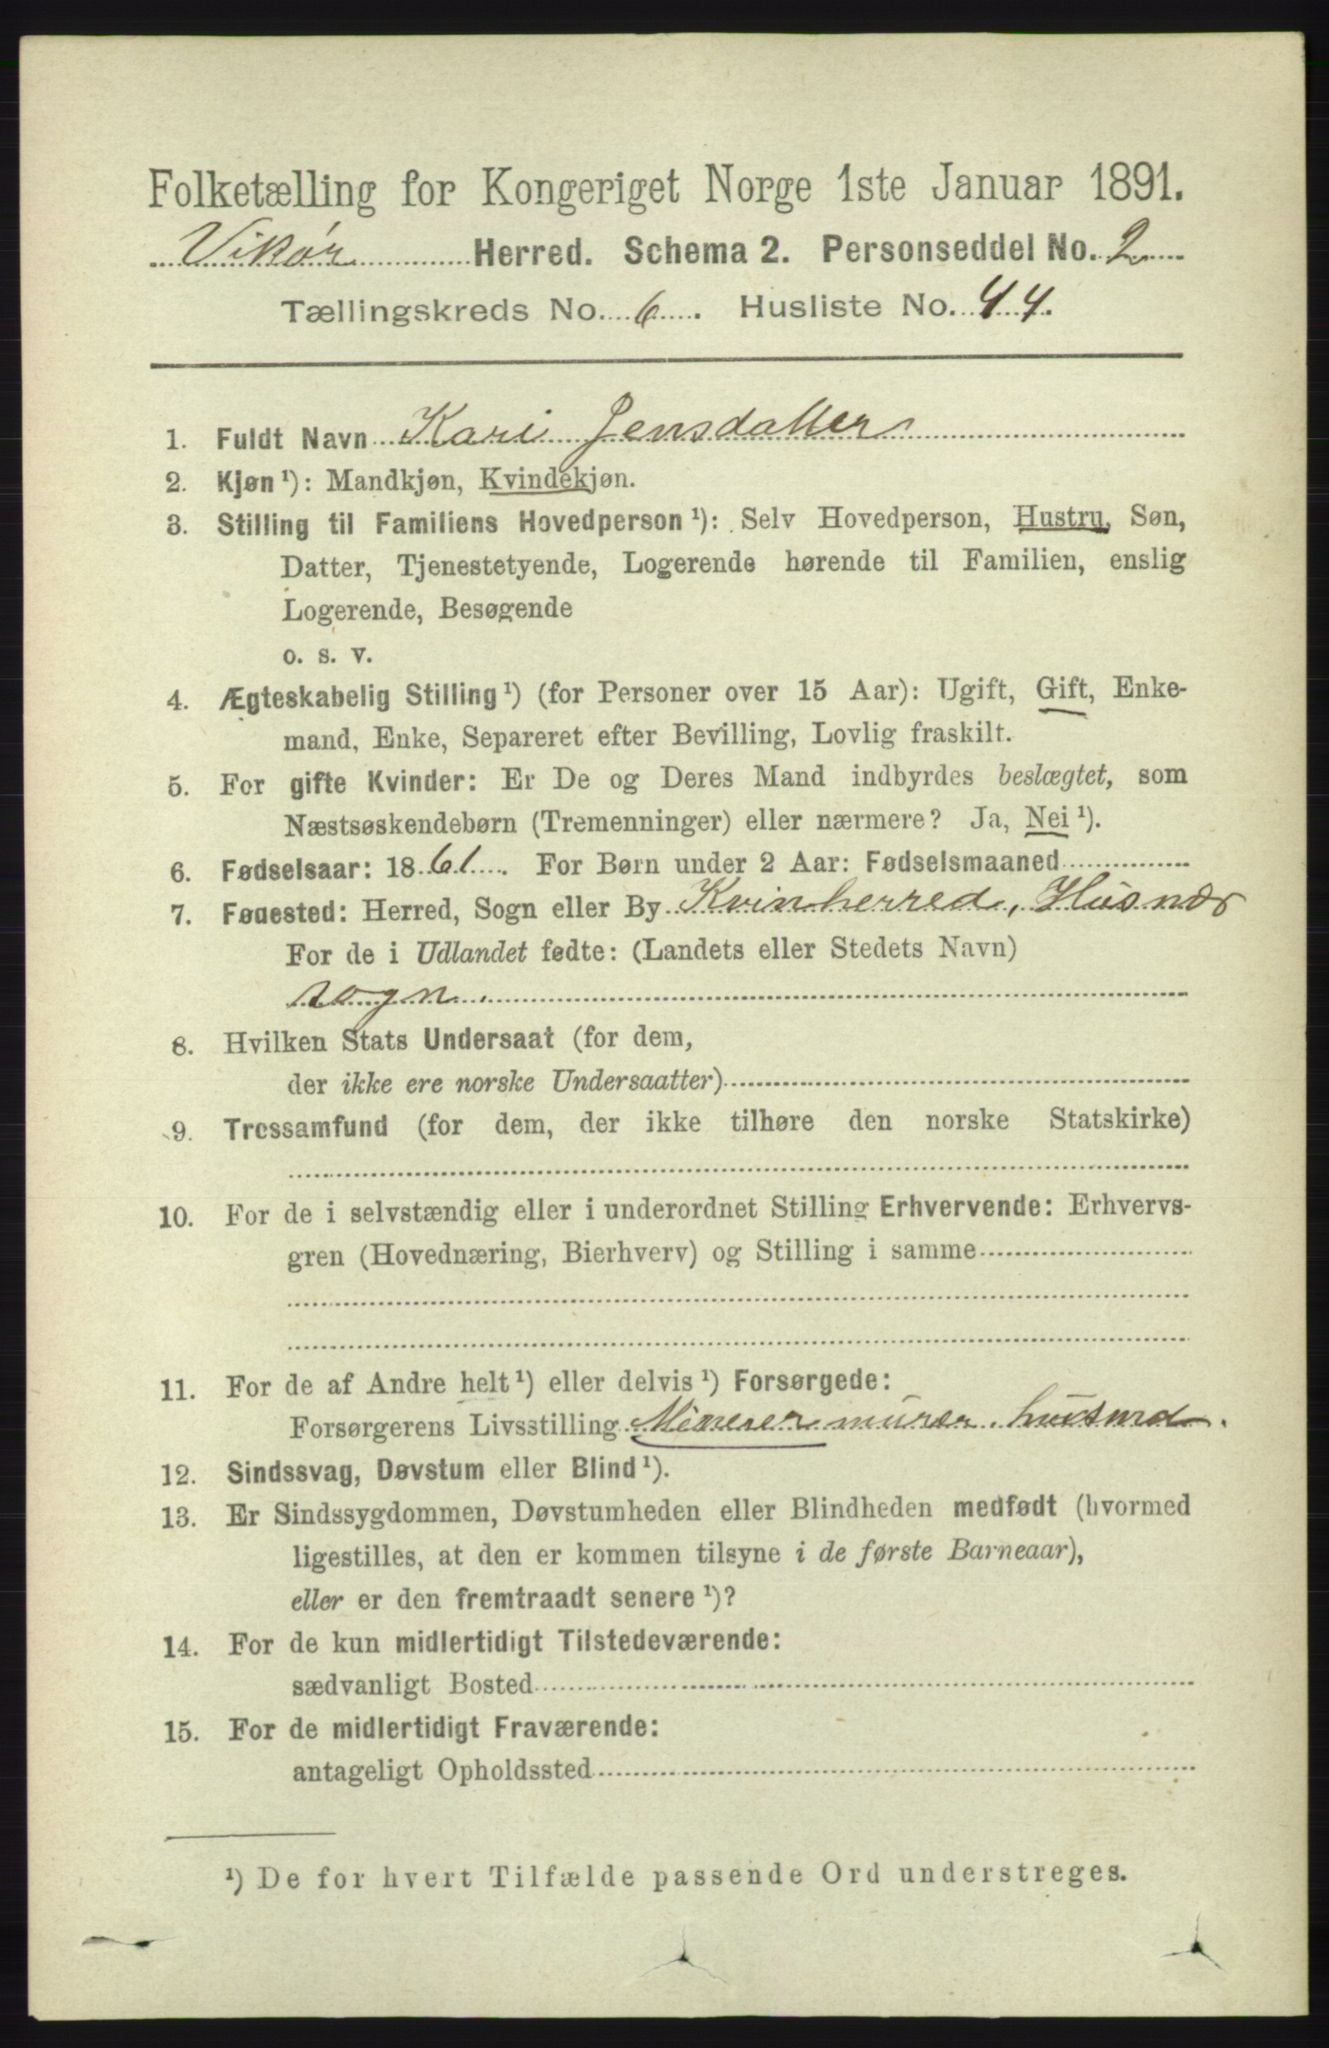 Folketælling for Kongeriget Norge 1ste Januar 1891.
Vikør Herred. Schema 2. Personseddel No. 2
Tællingskreds No. 6. Husliste No. 44.
1. Fuldt Navn Kari Jensdatter
2. Kjøn¹): Mandkjøn, Kvindekjøn.
3. Stilling til Familiens Hovedperson¹): Selv Hovedperson, Hustru, Søn,
Datter, Tjenestetyende, Logerende hørende til Familien, enslig
Logerende, Besøgende
o. s. v.
4. Ægteskabelig Stilling¹) (for Personer over 15 Aar): Ugift, Gift, Enke-
mand, Enke, Separeret efter Bevilling, Lovlig fraskilt.
5. For gifte Kvinder: Er De og Deres Mand indbyrdes beslægtet, som
Næstsøskendebørn (Tremenninger) eller nærmere? Ja, Nei¹).
6. Fødselsaar: 1861. For Børn under 2 Aar: Fødselsmaaned
7. Fødested: Herred, Sogn eller By Kvinherred, Husnær
For de i Udlandet fødte: (Landets eller Stedets Navn)
sogn.
8. Hvilken Stats Undersaat (for dem,
der ikke ere norske Undersaatter)
9. Trossamfund (for dem, der ikke tilhøre den norske Statskirke)
10. For de i selvstændig eller i underordnet Stilling Erhvervende: Erhvervs-
gren (Hovednæring, Bierhverv) og Stilling i samme
11. For de af Andre helt¹) eller delvis¹) Forsørgede:
Forsørgerens Livsstilling Minerer murer. husmd.
12. Sindssvag, Døvstum eller Blind¹).
13. Er Sindssygdommen, Døvstumheden eller Blindheden medfødt (hvormed
ligestilles, at den er kommen tilsyne i de første Barneaar),
eller er den fremtraadt senere¹)?
14. For de kun midlertidigt Tilstedeværende:
sædvanligt Bosted
15. For de midlertidigt Fraværende:
antageligt Opholdssted
¹) De for hvert Tilfælde passende Ord understreges.